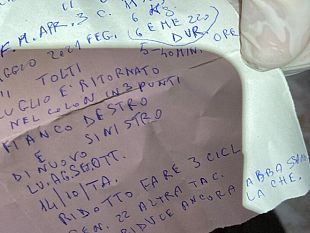 F.M. APR. 3 C.
6 E ME 220
MAGGIO 2021 FEG.
DUR. ORE
5-40MIN.
TOLTI
LUGLIO E' RITORNATO
NEL COLON IN 3 PUNTI
FIANCO DESTRO
E SINISTRO
DI NUOVO
LU. AG. SE. OTT.
14/10/TA.
RIDOTTO FARE 3 CICL
GEN. 22 ALTRA TAC.
RIDUCE ANCORA
LA CHE.